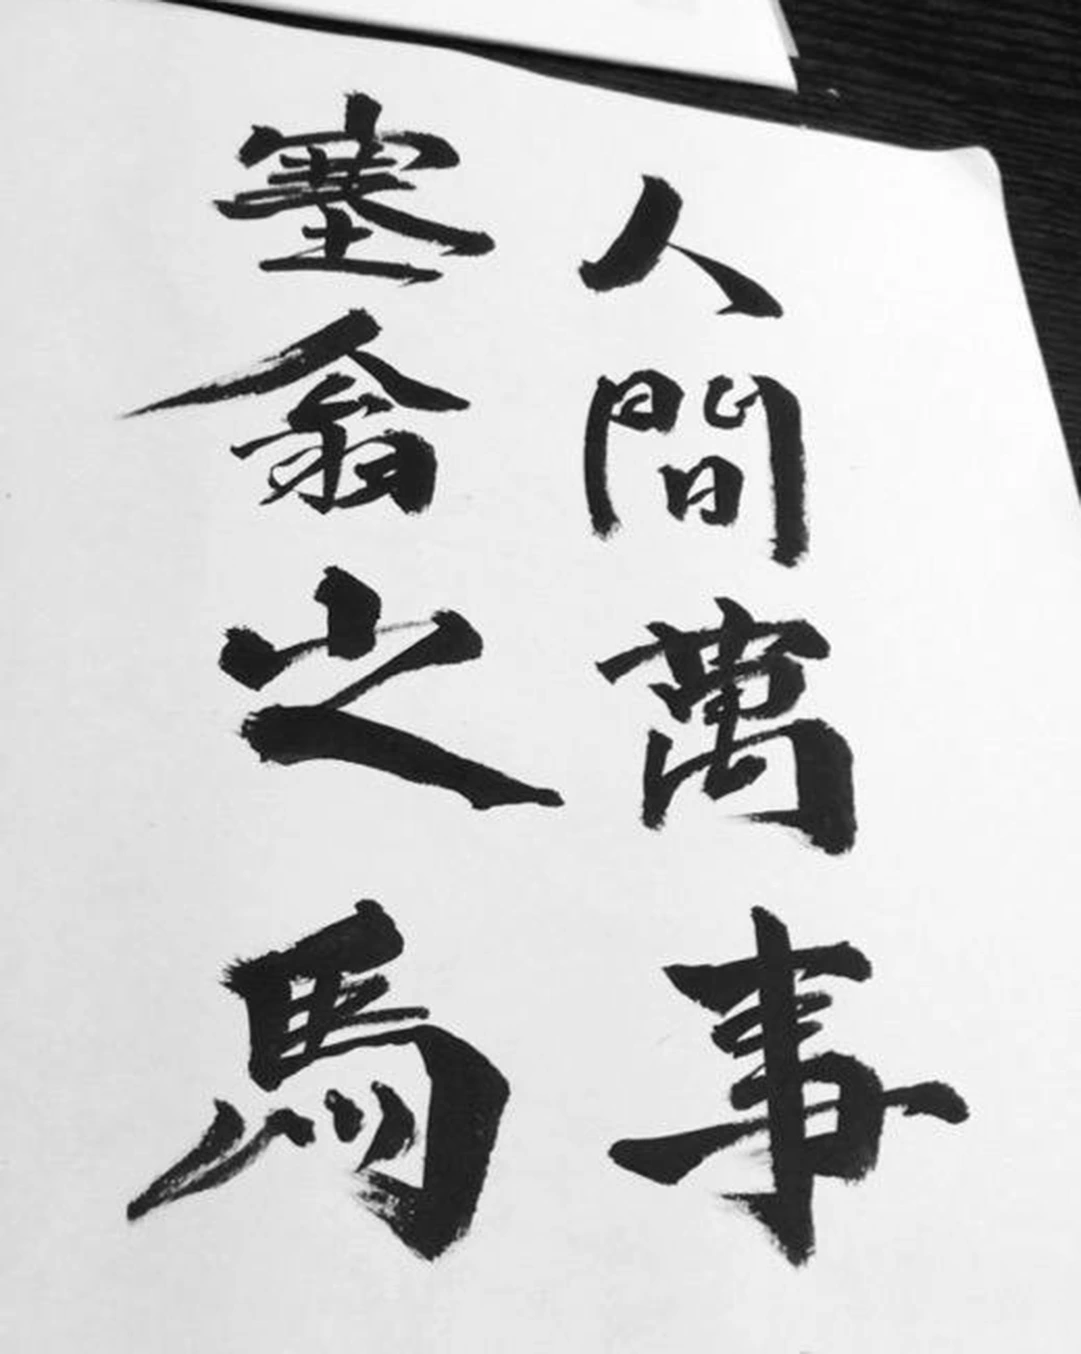 人間萬事
塞翁之馬